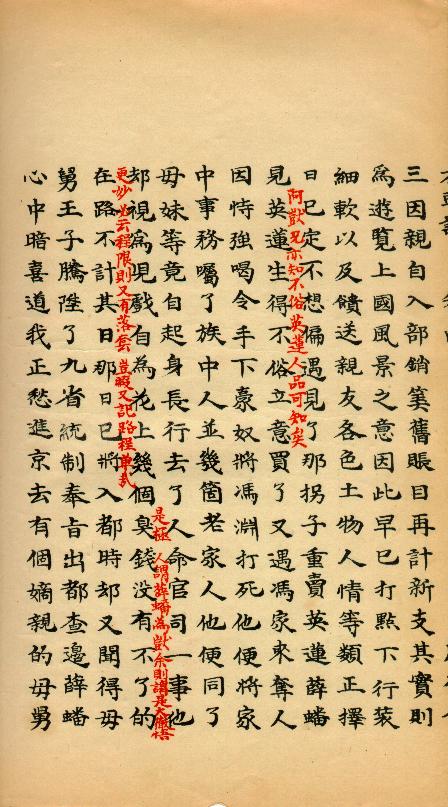 三因親自入部銷筭舊賬目再計新支其實則
爲遊覽上國風景之意因此早已打點下行裝
細軟以及饋送親友各色土物人情等類正擇
日已定不想偏遇見了那拐子重賣英蓮薛蟠
阿獃兄亦知不俗英蓮人品可知矣
見英蓮生得不俗立意買了又遇馮家來奪人
因恃強喝令手下豪奴將馮淵打死他便將家
中事務囑了族中人並幾箇老家人他便同了
母妹等竟自起身長行去了人命官司一事他
是極人謂薛蟠爲獃余則謂是大徹悟
却視爲兒戲自為花上幾個臭錢没有不了的
更妙必云程限則又有落套豈暇又記路程單哉
在路不計其日那日已將入都時却又聞得母
舅王子騰陞了九省統制奉旨出都查邊薛蟠
心中暗喜道我正愁進京去有個嫡親的母舅